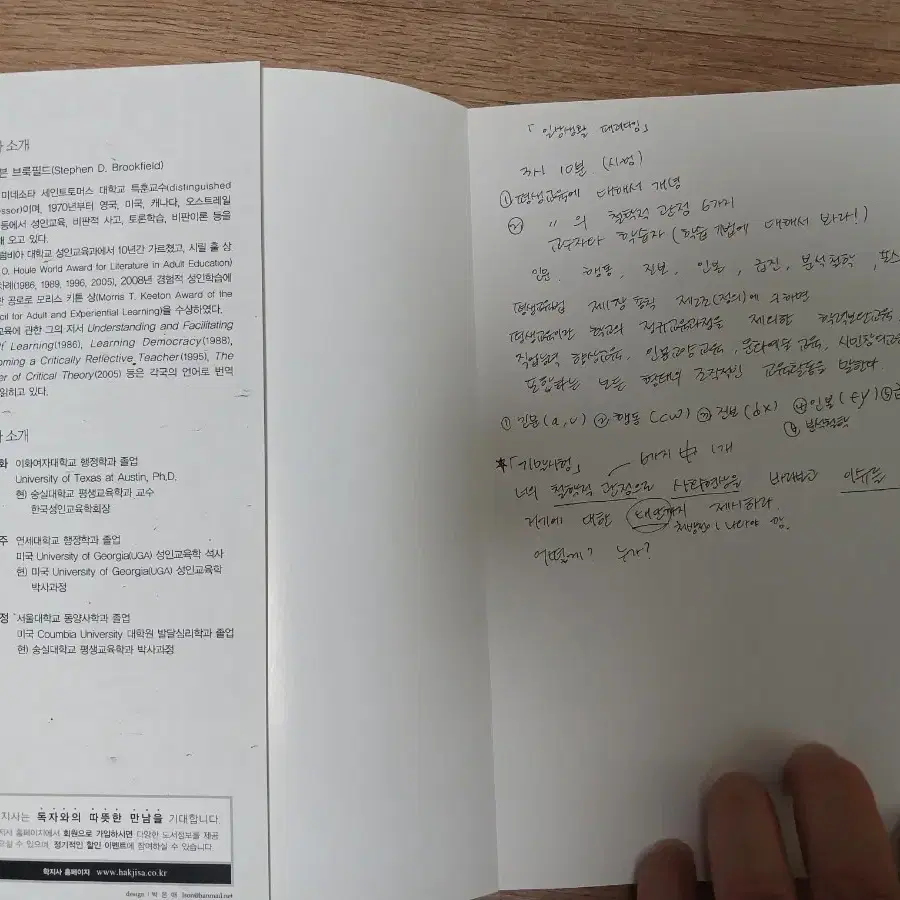 소개
브룩필드(Stephen D. Brookfield)
미네소타 세인트토머스 대학교 특훈교수(distinguished
ssor)이며, 1970년부터 영국, 미국, 캐나다, 오스트레일
등에서 성인교육, 비판적 사고, 토론학습, 비판이론 등을
해 오고 있다.
럼비아 대학교 성인교육과에서 10년간 가르쳤고, 시릴 훌 상
O. Houle World Award for Literature in Adult Education)
차례(1986, 1989, 1996, 2005), 2008년 경험적 성인학습에
한 공로로 모리스 키튼 상(Morris T. Keeton Award of the
cil for Adult and Experiential Learning)을 수상하였다.
교육에 관한 그의 저서 Understanding and Facilitating
Learning(1986), Learning Democracy(1988),
oming a Critically Reflective Teacher(1995), The
er of Critical Theory(2005) 등은 각국의 언어로 번역
읽히고 있다.
소개
화 이화여자대학교 행정학과 졸업
University of Texas at Austin, Ph.D.
현) 숭실대학교 평생교육학과 교수
한국성인교육학회장
주 연세대학교 행정학과 졸업
미국 University of Georgia(UGA) 성인교육학 석사
현) 미국 University of Georgia(UGA) 성인교육학
박사과정
정 서울대학교 동양사학과 졸업
미국 Coumbia University 대학원 발달심리학과 졸업
현) 숭실대학교 평생교육학과 박사과정
지사는 독자와의 따뜻한 만남을 기대합니다.
지사 홈페이지에서 회원으로 가입하시면 다양한 도서정보를 제공
으실 수 있으며, 정기적인 할인 이벤트에 참여하실 수 있습니다.
학지사 홈페이지 www.hakjisa.co.kr
design | 박은애
「일상생활 패러다임」
3시 10분 (시험)
① 평생교육에 대해서 개념
② 〃 의 철학적 관점 6가지
교수자나 학습자 (학습기법에 대해서 봐라!)
인문, 행동, 진보, 인본, 급진, 분석철학, 포스
평생교육법 제1장 총칙 제2조(정의)에 의하면
평생교육이란 학교의 정규교육과정을 제외한 학력보완교육,
직업능력 향상교육, 인문교양교육, 문화예술 교육, 시민참여교육
포함하는 모든 형태의 조직적인 교육활동을 말한다.
① 인문(a,v) ② 행동(cw) ③ 진보(bx) ④ 인본(ty) ⑤ 급
⑥ 분석철학
*「기말시험」 6가지 中 1개
너의 철학적 관점으로 사회현상을 바라보고 이슈를
거기에 대한 대안까지 제시하라.
처방전이 나와야 함.
어떻게? 누가?